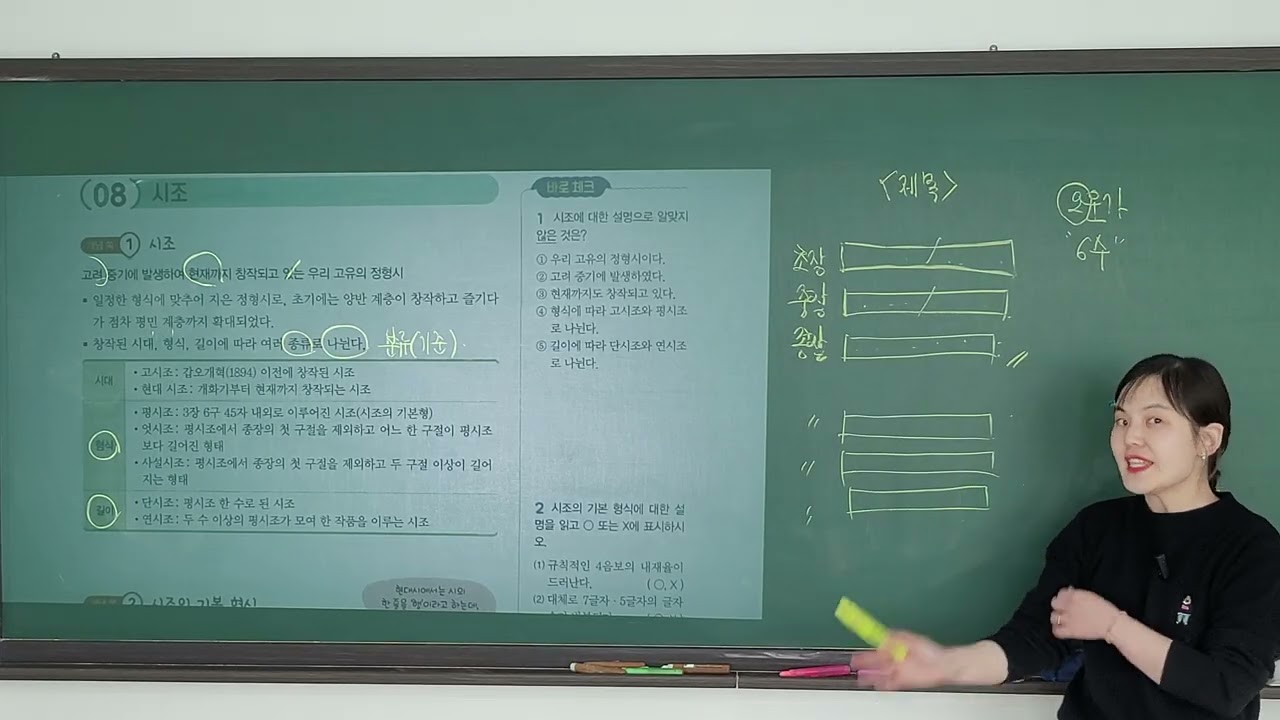 (08) 시조
1 시조
고려 중기에 발생하여 현재까지 창작되고 있는 우리 고유의 정형시
▪ 일정한 형식에 맞추어 지은 정형시로, 초기에는 양반 계층이 창작하고 즐기다
가 점차 평민 계층까지 확대되었다.
▪ 창작된 시대, 형식, 길이에 따라 여러 종류로 나뉜다. 분류(기준).
시대
• 고시조: 갑오개혁(1894) 이전에 창작된 시조
• 현대 시조: 개화기부터 현재까지 창작되는 시조
형식
• 평시조: 3장 6구 45자 내외로 이루어진 시조(시조의 기본형)
• 엇시조: 평시조에서 종장의 첫 구절을 제외하고 어느 한 구절이 평시조
보다 길어진 형태
• 사설시조: 평시조에서 종장의 첫 구절을 제외하고 두 구절 이상이 길어
지는 형태
길이
• 단시조: 평시조 한 수로 된 시조
• 연시조: 두 수 이상의 평시조가 모여 한 작품을 이루는 시조
2 시조의 기본 형식
현대시에서는 시의
한 줄을 '행'이라고 하는데,
바로 체크
1 시조에 대한 설명으로 알맞지
않은 것은?
① 우리 고유의 정형시이다.
② 고려 중기에 발생하였다.
③ 현재까지도 창작되고 있다.
④ 형식에 따라 고시조와 평시조
로 나뉜다.
⑤ 길이에 따라 단시조와 연시조
로 나뉜다.
2 시조의 기본 형식에 대한 설
명을 읽고 ○ 또는 X에 표시하시
오.
(1) 규칙적인 4음보의 내재율이
드러난다. (○, X)
(2) 대체로 7글자·5글자의 글자
<제목>
초장
중장
종장
〃
〃
오륜가
"6수"